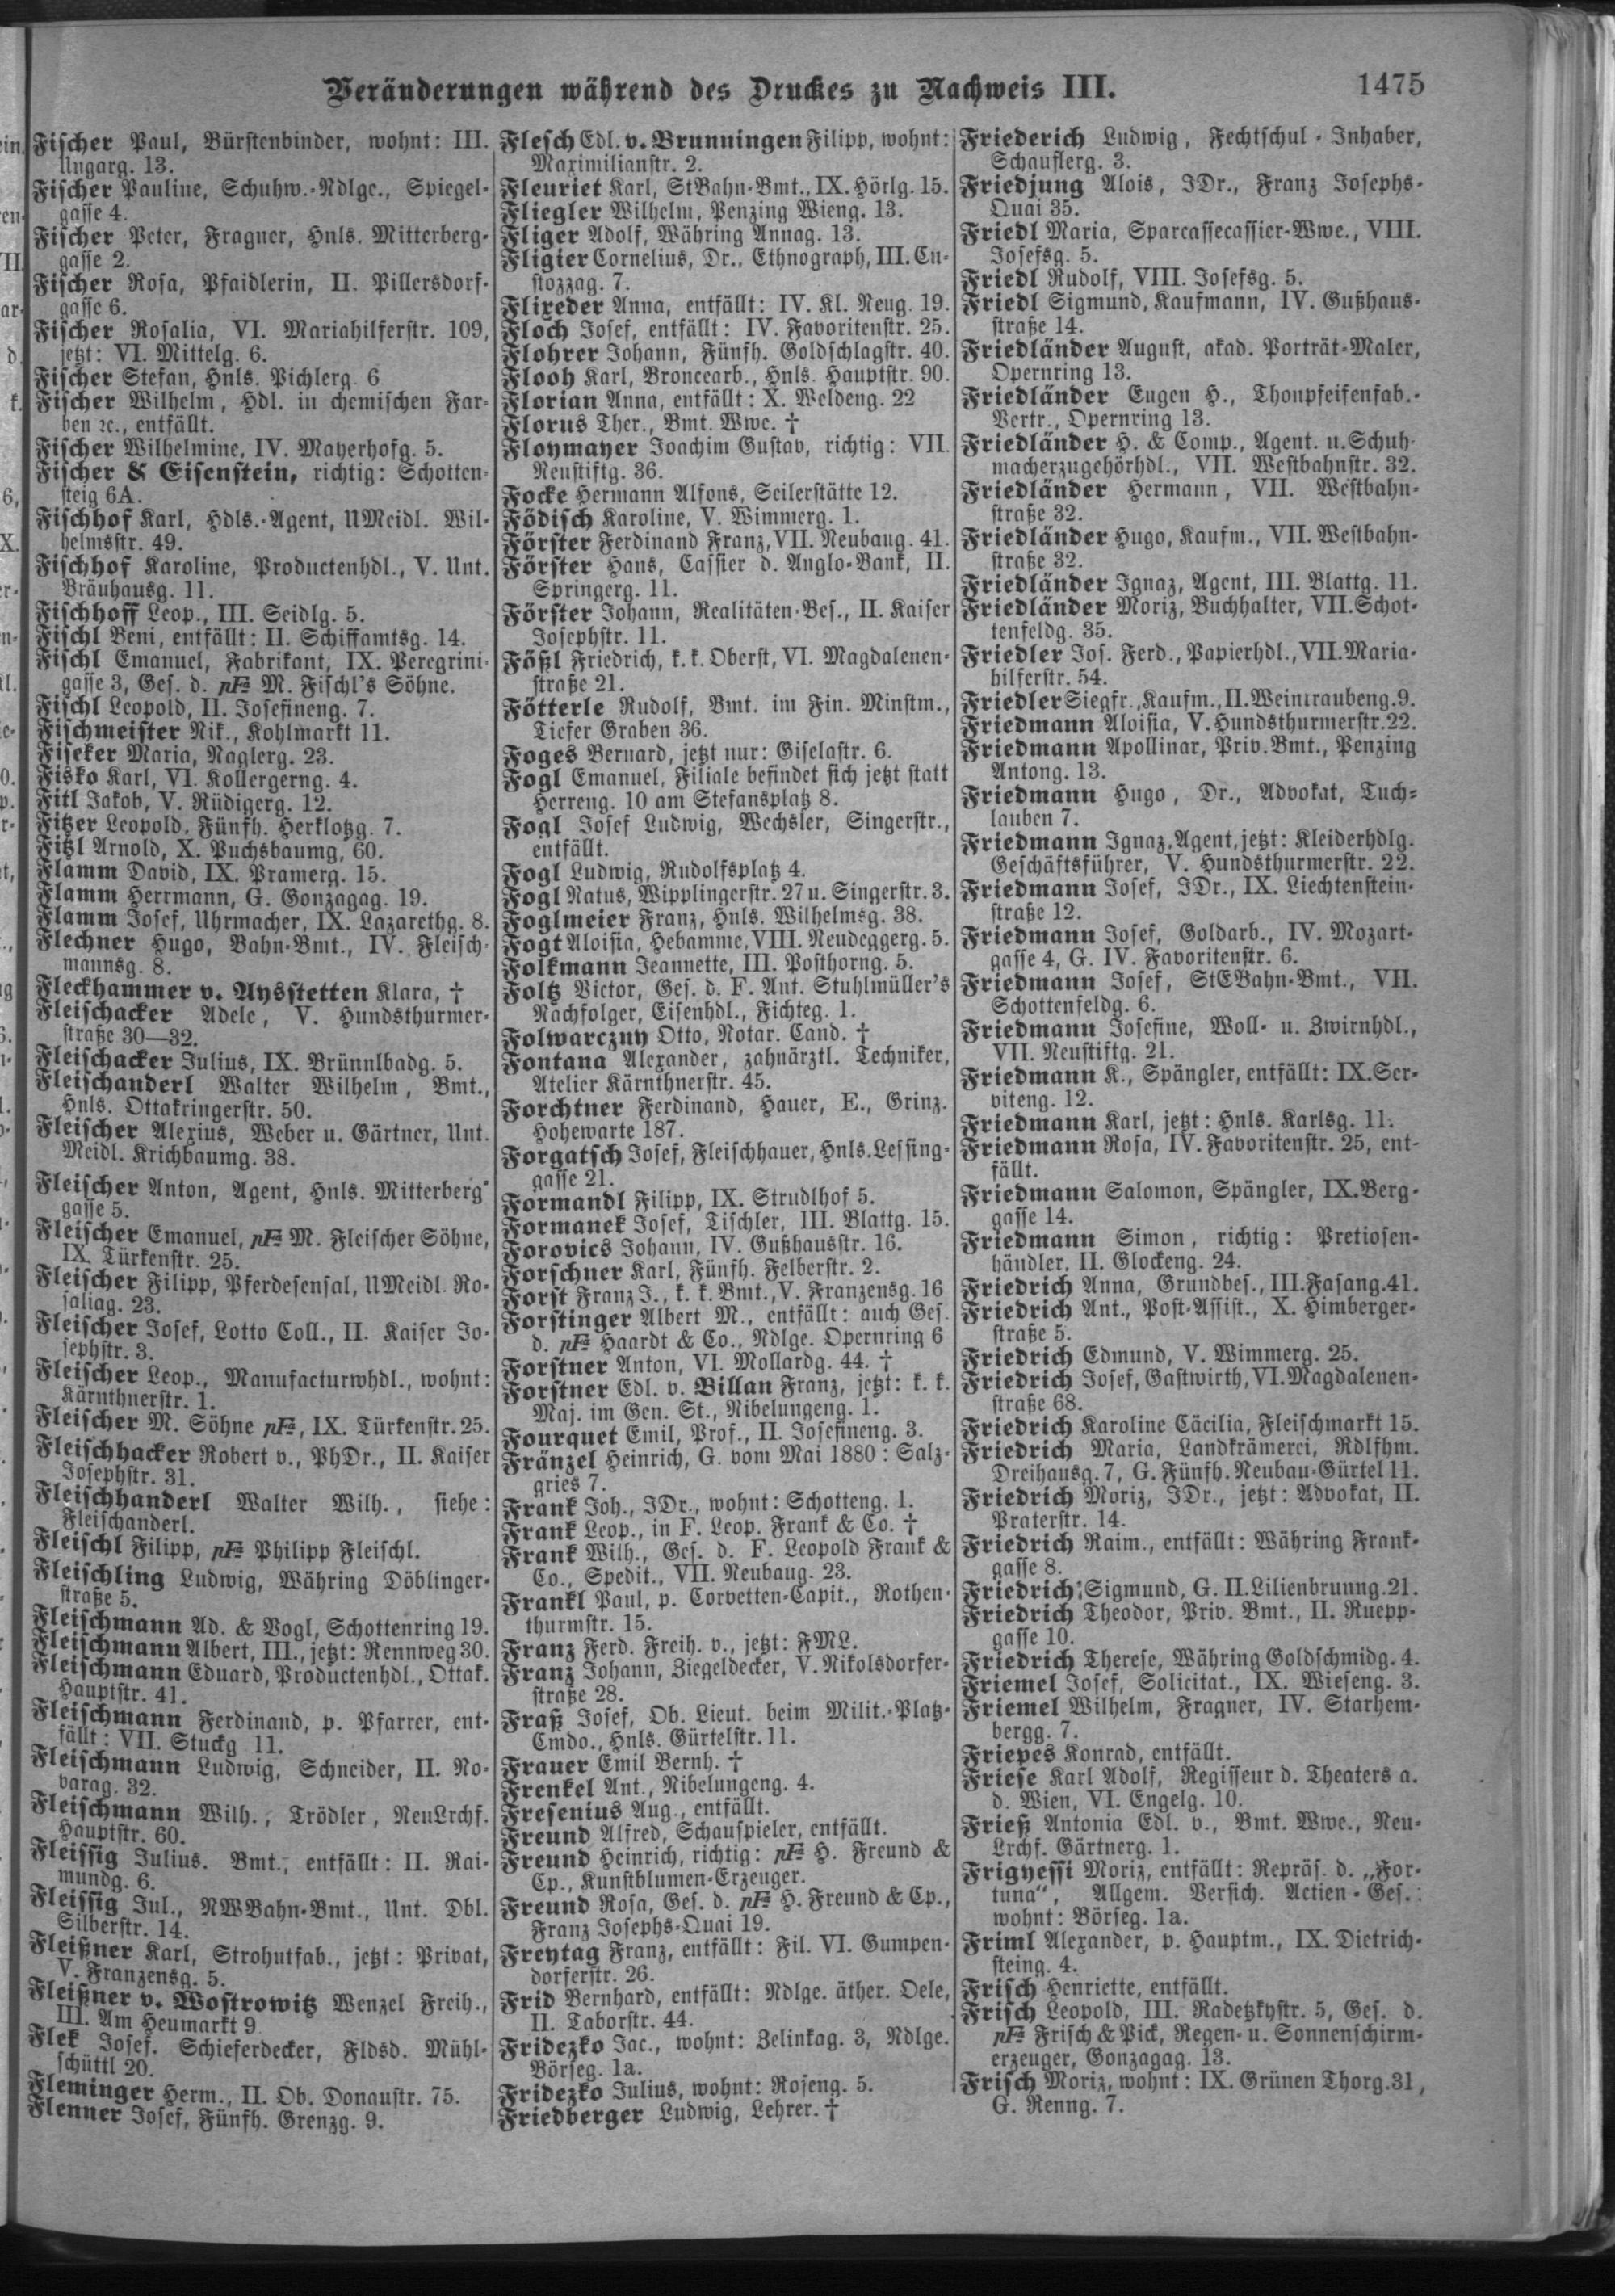 Veränderungen während des Druckes zu Nachweis III. 1475
Fischer Paul, Bürstenbinder, wohnt: III.
Ungarg. 13.
Fischer Pauline, Schuhw.-Ndlge., Spiegel-
gasse 4.
Fischer Peter, Fragner, Hnls. Mitterberg-
gasse 2.
Fischer Rosa, Pfaidlerin, II. Pillersdorf-
gasse 6.
Fischer Rosalia, VI. Mariahilferstr. 109,
jetzt: VI. Mittelg. 6.
Fischer Stefan, Hnls. Pichlerg. 6
Fischer Wilhelm, Hdl. in chemischen Far-
ben ꝛc., entfällt.
Fischer Wilhelmine, IV. Mayerhofg. 5.
Fischer & Eisenstein, richtig: Schotten-
steig 6A.
Fischhof Karl, Hdls.-Agent, UMeidl. Wil-
helmsstr. 49.
Fischhof Karoline, Productenhdl., V. Unt.
Bräuhausg. 11.
Fischhoff Leop., III. Seidlg. 5.
Fischl Beni, entfällt: II. Schiffamtsg. 14.
Fischl Emanuel, Fabrikant, IX. Peregrini-
gasse 3, Ges. d. pF= M. Fischl's Söhne.
Fischl Leopold, II. Josefineng. 7.
Fischmeister Nik., Kohlmarkt 11.
Fiseker Maria, Naglerg. 23.
Fisko Karl, VI. Kollergerng. 4.
Fitl Jakob, V. Rüdigerg. 12.
Fitzer Leopold, Fünfh. Herklotzg. 7.
Fitzl Arnold, X. Puchsbaumg, 60.
Flamm David, IX. Pramerg. 15.
Flamm Herrmann, G. Gonzagag. 19.
Flamm Josef, Uhrmacher, IX. Lazarethg. 8.
Flechner Hugo, Bahn-Bmt., IV. Fleisch-
mannsg. 8.
Fleckhammer v. Aysstetten Klara, †
Fleischacker Adele, V. Hundsthurmer-
straße 30—32.
Fleischacker Julius, IX. Brünnlbadg. 5.
Fleischanderl Walter Wilhelm, Bmt.,
Hnls. Ottakringerstr. 50.
Fleischer Alexius, Weber u. Gärtner, Unt.
Meidl. Krichbaumg. 38.
Fleischer Anton, Agent, Hnls. Mitterberg-
gasse 5.
Fleischer Emanuel, pF= M. Fleischer Söhne,
IX. Türkenstr. 25.
Fleischer Filipp, Pferdesensal, UMeidl. Ro-
saliag. 23.
Fleischer Josef, Lotto Coll., II. Kaiser Jo-
sephstr. 3.
Fleischer Leop., Manufacturwhdl., wohnt:
Kärnthnerstr. 1.
Fleischer M. Söhne pF=, IX. Türkenstr. 25.
Fleischhacker Robert v., PhDr., II. Kaiser
Josephstr. 31.
Fleischhanderl Walter Wilh., siehe:
Fleischanderl.
Fleischl Filipp, pF= Philipp Fleischl.
Fleischling Ludwig, Währing Döblinger-
straße 5.
Fleischmann Ad. & Vogl, Schottenring 19.
Fleischmann Albert, III., jetzt: Rennweg 30.
Fleischmann Eduard, Productenhdl., Ottak.
Hauptstr. 41.
Fleischmann Ferdinand, p. Pfarrer, ent-
fällt: VII. Stuckg 11.
Fleischmann Ludwig, Schneider, II. No-
varag. 32.
Fleischmann Wilh., Trödler, NeuLrchf.
Hauptstr. 60.
Fleissig Julius. Bmt., entfällt: II. Rai-
mundg. 6.
Fleissig Jul., NWBahn-Bmt., Unt. Dbl.
Silberstr. 14.
Fleißner Karl, Strohutfab., jetzt: Privat,
V. Franzensg. 5.
Fleißner v. Wostrowitz Wenzel Freih.,
III. Am Heumarkt 9
Flek Josef. Schieferdecker, Fldsd. Mühl-
schüttl 20.
Fleminger Herm., II. Ob. Donaustr. 75.
Flenner Josef, Fünfh. Grenzg. 9.
Flesch Edl. v. Brunningen Filipp, wohnt:
Maximilianstr. 2.
Fleuriet Karl, StBahn-Bmt., IX. Hörlg. 15.
Fliegler Wilhelm, Penzing Wieng. 13.
Fliger Adolf, Währing Annag. 13.
Fligier Cornelius, Dr., Ethnograph, III. Cu-
stozzag. 7.
Flixeder Anna, entfällt: IV. Kl. Neug. 19.
Floch Josef, entfällt: IV. Favoritenstr. 25.
Flohrer Johann, Fünfh. Goldschlagstr. 40.
Flooh Karl, Broncearb., Hnls. Hauptstr. 90.
Florian Anna, entfällt: X. Weldeng. 22
Florus Ther., Bmt. Wwe. †
Floymayer Joachim Gustav, richtig: VII.
Neustiftg. 36.
Focke Hermann Alfons, Seilerstätte 12.
Födisch Karoline, V. Wimmerg. 1.
Förster Ferdinand Franz, VII. Neubaug. 41.
Förster Hans, Cassier d. Anglo-Bank, II.
Springerg. 11.
Förster Johann, Realitäten-Bes., II. Kaiser
Josephstr. 11.
Fößl Friedrich, k. k. Oberst, VI. Magdalenen-
straße 21.
Fötterle Rudolf, Bmt. im Fin. Minstm.,
Tiefer Graben 36.
Foges Bernard, jetzt nur: Giselastr. 6.
Fogl Emanuel, Filiale befindet sich jetzt statt
Herreng. 10 am Stefansplatz 8.
Fogl Josef Ludwig, Wechsler, Singerstr.,
entfällt.
Fogl Ludwig, Rudolfsplatz 4.
Fogl Natus, Wipplingerstr. 27 u. Singerstr. 3.
Foglmeier Franz, Hnls. Wilhelmsg. 38.
Fogt Aloisia, Hebamme, VIII. Neudeggerg. 5.
Folkmann Jeannette, III. Posthorng. 5.
Foltz Victor, Ges. d. F. Ant. Stuhlmüller's
Nachfolger, Eisenhdl., Fichteg. 1.
Folwarczny Otto, Notar. Cand. †
Fontana Alexander, zahnärztl. Techniker,
Atelier Kärnthnerstr. 45.
Forchtner Ferdinand, Hauer, E., Grinz.
Hohewarte 187.
Forgatsch Josef, Fleischhauer, Hnls. Lessing-
gasse 21.
Formandl Filipp, IX. Strudlhof 5.
Formanek Josef, Tischler, III. Blattg. 15.
Forovics Johann, IV. Gußhausstr. 16.
Forschner Karl, Fünfh. Felberstr. 2.
Forst Franz J., k. k. Bmt., V. Franzensg. 16
Forstinger Albert M., entfällt: auch Ges.
d. pF= Haardt & Co., Ndlge. Opernring 6
Forstner Anton, VI. Mollardg. 44. †
Forstner Edl. v. Billan Franz, jetzt: k. k.
Maj. im Gen. St., Nibelungeng. 1.
Fourquet Emil, Prof., II. Josefineng. 3.
Fränzel Heinrich, G. vom Mai 1880: Salz-
gries 7.
Frank Joh., JDr., wohnt: Schotteng. 1.
Frank Leop., in F. Leop. Frank & Co. †
Frank Wilh., Ges. d. F. Leopold Frank &
Co., Spedit., VII. Neubaug. 23.
Frankl Paul, p. Corvetten-Capit., Rothen-
thurmstr. 15.
Franz Ferd. Freih. v., jetzt: FML.
Franz Johann, Ziegeldecker, V. Nikolsdorfer-
straße 28.
Fraß Josef, Ob. Lieut. beim Milit.-Platz-
Cmdo., Hnls. Gürtelstr. 11.
Frauer Emil Bernh. †
Frenkel Ant., Nibelungeng. 4.
Fresenius Aug., entfällt.
Freund Alfred, Schauspieler, entfällt.
Freund Heinrich, richtig: pF= H. Freund &
Cp., Kunstblumen-Erzeuger.
Freund Rosa, Ges. d. pF= H. Freund & Cp.,
Franz Josephs-Quai 19.
Freytag Franz, entfällt: Fil. VI. Gumpen-
dorferstr. 26.
Frid Bernhard, entfällt: Ndlge. äther. Oele,
II. Taborstr. 44.
Fridezko Jac., wohnt: Zelinkag. 3, Ndlge.
Börseg. 1a.
Fridezko Julius, wohnt: Roseng. 5.
Friedberger Ludwig, Lehrer. †
Friederich Ludwig, Fechtschul-Inhaber,
Schauflerg. 3.
Friedjung Alois, JDr., Franz Josephs-
Quai 35.
Friedl Maria, Sparcassecassier-Wwe., VIII.
Josefsg. 5.
Friedl Rudolf, VIII. Josefsg. 5.
Friedl Sigmund, Kaufmann, IV. Gußhaus-
straße 14.
Friedländer August, akad. Porträt-Maler,
Opernring 13.
Friedländer Eugen H., Thonpfeifenfab.-
Vertr., Opernring 13.
Friedländer H. & Comp., Agent. u. Schuh-
macherzugehörhdl., VII. Westbahnstr. 32.
Friedländer Hermann, VII. Westbahn-
straße 32.
Friedländer Hugo, Kaufm., VII. Westbahn-
straße 32.
Friedländer Ignaz, Agent, III. Blattg. 11.
Friedländer Moriz, Buchhalter, VII. Schot-
tenfeldg. 35.
Friedler Jos. Ferd., Papierhdl., VII. Maria-
hilferstr. 54.
Friedler Siegfr., Kaufm., II. Weintraubeng. 9.
Friedmann Aloisia, V. Hundsthurmerstr. 22.
Friedmann Apollinar, Priv. Bmt., Penzing
Antong. 13.
Friedmann Hugo, Dr., Advokat, Tuch-
lauben 7.
Friedmann Ignaz, Agent, jetzt: Kleiderhdlg.
Geschäftsführer, V. Hundsthurmerstr. 22.
Friedmann Josef, JDr., IX. Liechtenstein-
straße 12.
Friedmann Josef, Goldarb., IV. Mozart-
gasse 4, G. IV. Favoritenstr. 6.
Friedmann Josef, StEBahn-Bmt., VII.
Schottenfeldg. 6.
Friedmann Josefine, Woll- u. Zwirnhdl.,
VII. Neustiftg. 21.
Friedmann K., Spängler, entfällt: IX. Ser-
viteng. 12.
Friedmann Karl, jetzt: Hnls. Karlsg. 11.
Friedmann Rosa, IV. Favoritenstr. 25, ent-
fällt.
Friedmann Salomon, Spängler, IX. Berg-
gasse 14.
Friedmann Simon, richtig: Pretiosen-
händler, II. Glockeng. 24.
Friedrich Anna, Grundbes., III. Fasang. 41.
Friedrich Ant., Post-Assist., X. Himberger-
straße 5.
Friedrich Edmund, V. Wimmerg. 25.
Friedrich Josef, Gastwirth, VI. Magdalenen-
straße 68.
Friedrich Karoline Cäcilia, Fleischmarkt 15.
Friedrich Maria, Landkrämerei, Rdlfhm.
Dreihausg. 7, G. Fünfh. Neubau-Gürtel 11.
Friedrich Moriz, JDr., jetzt: Advokat, II.
Praterstr. 14.
Friedrich Raim., entfällt: Währing Frank-
gasse 8.
Friedrich Sigmund, G. II. Lilienbrunng. 21.
Friedrich Theodor, Priv. Bmt., II. Ruepp-
gasse 10.
Friedrich Therese, Währing Goldschmidg. 4.
Friemel Josef, Solicitat., IX. Wieseng. 3.
Friemel Wilhelm, Fragner, IV. Starhem-
bergg. 7.
Friepes Konrad, entfällt.
Friese Karl Adolf, Regisseur d. Theaters a.
d. Wien, VI. Engelg. 10.
Frieß Antonia Edl. v., Bmt. Wwe., Neu-
Lrchf. Gärtnerg. 1.
Frignessi Moriz, entfällt: Repräs. d. „For-
tuna“, Allgem. Versich. Actien-Ges.:
wohnt: Börseg. 1a.
Friml Alexander, p. Hauptm., IX. Dietrich-
steing. 4.
Frisch Henriette, entfällt.
Frisch Leopold, III. Radetzkystr. 5, Ges. d.
pF= Frisch & Pick, Regen- u. Sonnenschirm-
erzeuger, Gonzagag. 13.
Frisch Moriz, wohnt: IX. Grünen Thorg. 31,
G. Renng. 7.